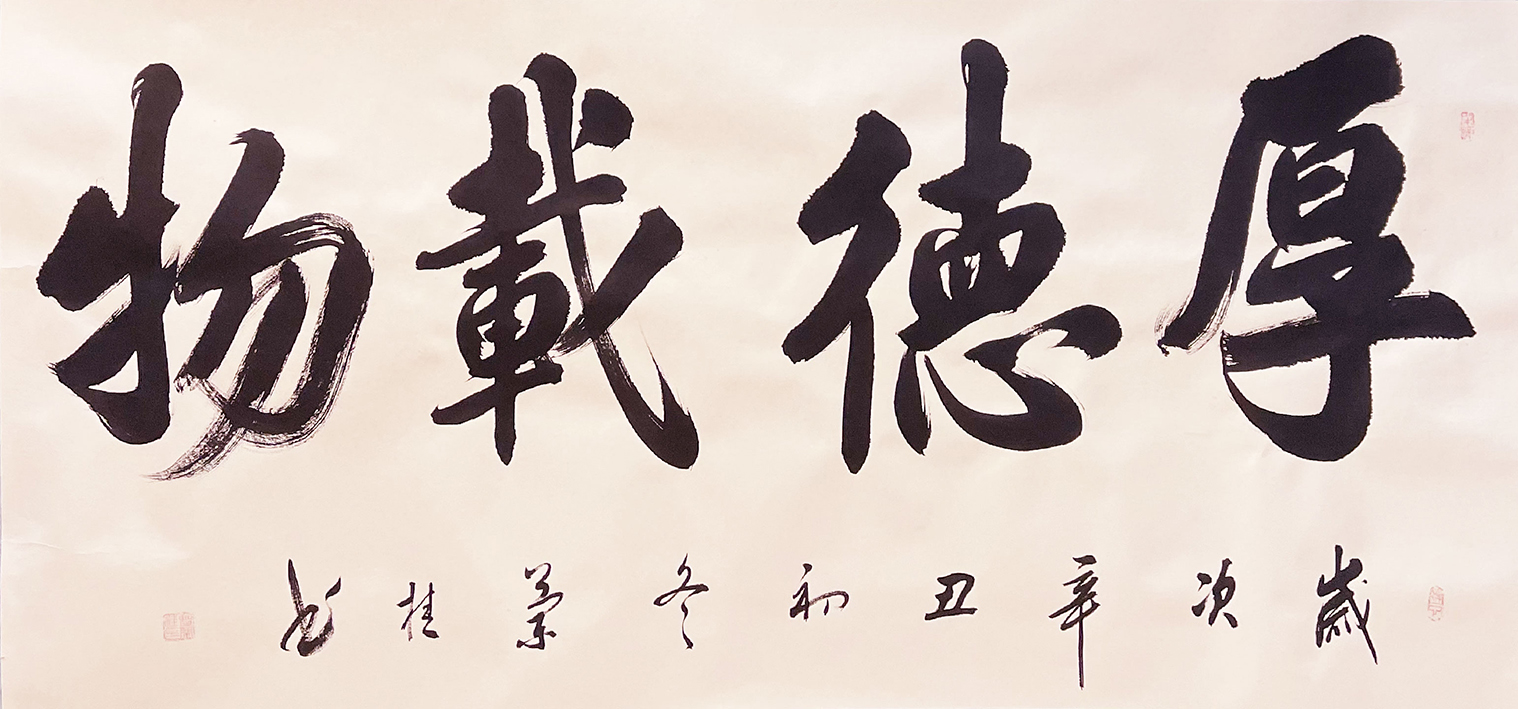 厚德載物
歲次辛丑初冬桂书